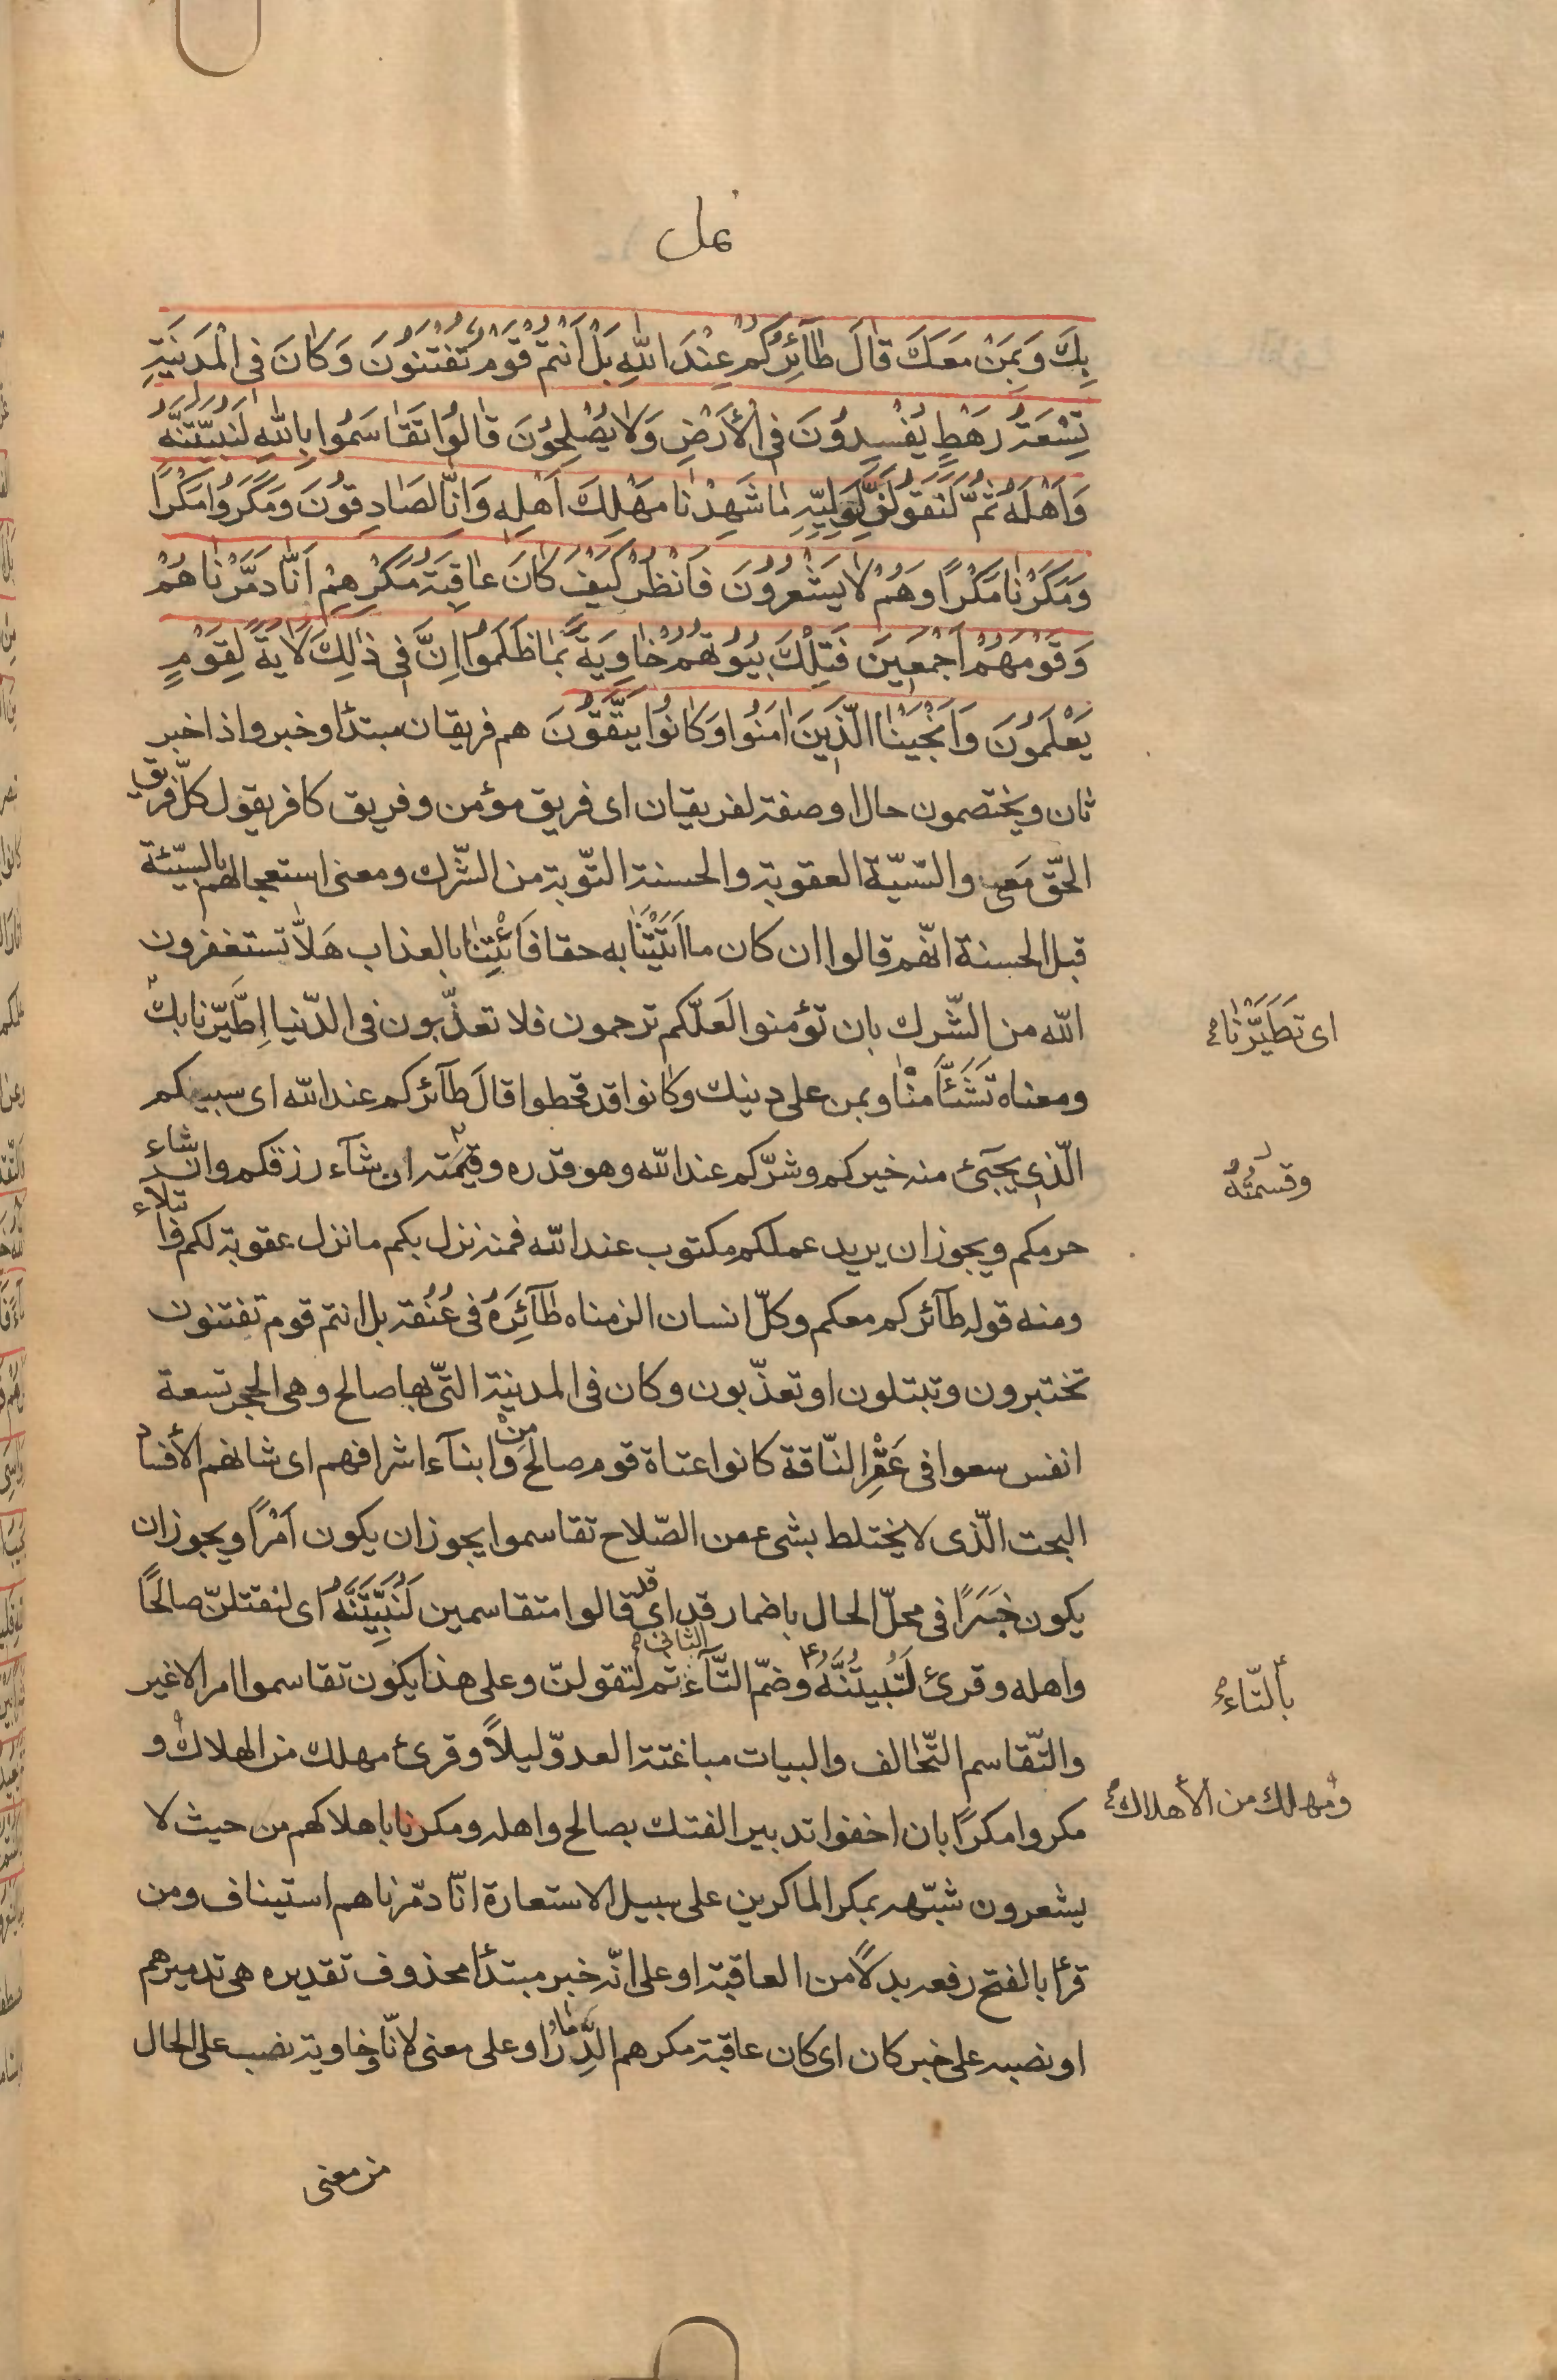 نمل
بِكَ وَبِمَنْ مَعَكَ قٰالَ طٰآئِرُكُمْ عِنْدَ اللّٰهِ بَلْ اَنْتُمْ قَوْمٌ تُفْتَنُونَ وَكٰانَ فِى الْمَدينَةِ
تِسْعَةُ رَهْطٍ يُفْسِدُونَ فِى الْأَرْضِ وَلٰا يُصْلِحُونَ قٰالُوا تَقٰاسَمُوا بِاللّٰهِ لَنُبَيِّتَنَّهُ
وَاَهْلَهُ ثُمَّ لَنَقُولَنَّ لِوَلِيِّهِ مٰا شَهِدْنٰا مَهْلِكَ اَهْلِهِ وَاِنّٰا لَصٰادِقُونَ وَمَكَرُوا مَكْرًا
وَمَكَرْنٰا مَكْرًا وَهُمْ لٰا يَشْعُرُونَ فَانْظُرْ كَيْفَ كٰانَ عٰاقِبَةُ مَكْرِهِمْ اَنّٰا دَمَّرْنٰاهُمْ
وَقَوْمَهُمْ اَجْمَعينَ فَتِلْكَ بُيُوتُهُمْ خٰاوِيَةً بِمٰا ظَلَمُوا اِنَّ فى ذٰلِكَ لَاٰيَةً لِقَوْمٍ
يَعْلَمُونَ وَاَنْجَيْنَا الَّذينَ اٰمَنُوا وَكٰانُوا يَتَّقُونَ هم فريقان مبتدأ وخبر واذا خبر
ثان ويختصمون حال او صفة لفريقان اى فريق مؤمن وفريق كافر يقول كلّ فريق
الحقّ مَعى والسّيّة العقوبة والحسنة التّوبة من الشّرك ومعنى استعجالهم بالسّيّئة
قبل الحسنة انّهم قالوا ان كان ما اَتَيْتَنٰا به حقا فَأْتِنٰا بالعذاب هَلاّٰ تستغفرون
اللّه من الشّرك بان تؤمنوا لَعَلّكم ترحمون فلا تعذّبون فى الدّنيا اِطَّيَّرنا بك
اى تَطَيَّرْنٰا
ومعناه تَشَئَّأَمْنٰا وبمن على دينك وكٰانوا قد قحطوا قالَ طآئركم عند اللّه اى سببكم
الّذى يجَىئ منه خيركم وشرّكم عند اللّه وهو قدره وقيمته ان شآء رزقكم وان شاء
وقسمتُهُ
حرمكم ويجوز ان يريد عملكم مكتوب عند اللّه فمنه نزل بكم ما نزل عقوبة لكم وابتلاء
ومنه قوله طآئركم معكم وكلّ انسان الزمناه طٰآئِرَهُ فى عُنُقه بل انتم قوم تفتنون
تختبرون وتبتلون او تعذّبون وكان فى المدينة الّتى بها صالح وهى الحجر تسعة
انفس سعوا فى عَقْرِ النّاقة كانوا عتاة قوم صالح وَمِنْ ابنآء اشرافهم اى شانهم الأفساد
البحت الّذى لا يختلط بشىء من الصّلاح تقاسموا يجوز ان يكون اَمْرًا ويجوز ان
يكون خبَرًا فى محلّ الحال باضمار قد اى قد قالوا متقاسمين لَنُبَيِّتَنَّهُ اى لنقتلنّ صالحًا
واهله وقرئ لَتُبيتُنَّهُ وضمّ التّآء الثانى ثم لتقولنّ وعلى هذا يكون تقاسموا امر الا غير
بالتّاء
والتّقاسم التّحٰالف والبيات مباغتة العدوّ ليلاً وقرئ مهلك من الهلاك و
ومهلك من الأهلاك
مكروا مكرًا بان اخفوا تدبير الفتك بصالح واهله ومكرنا باهلاكهم من حيث لا
يشعرون شبّهه بمكر الماكرين على سبيل الاستعارة انّا دمّرناهم استيناف ومن
قرأ بالفتح رفعه بدلاً من العاقبة او على انّه خبر مبتدأ محذوف تقديره هى تدميرهم
او نصبه على خبر كان اى كان عاقبة مكرهم الدِّمٰار او على معنى لانّا وخاوية نصب على الحال
من معنى